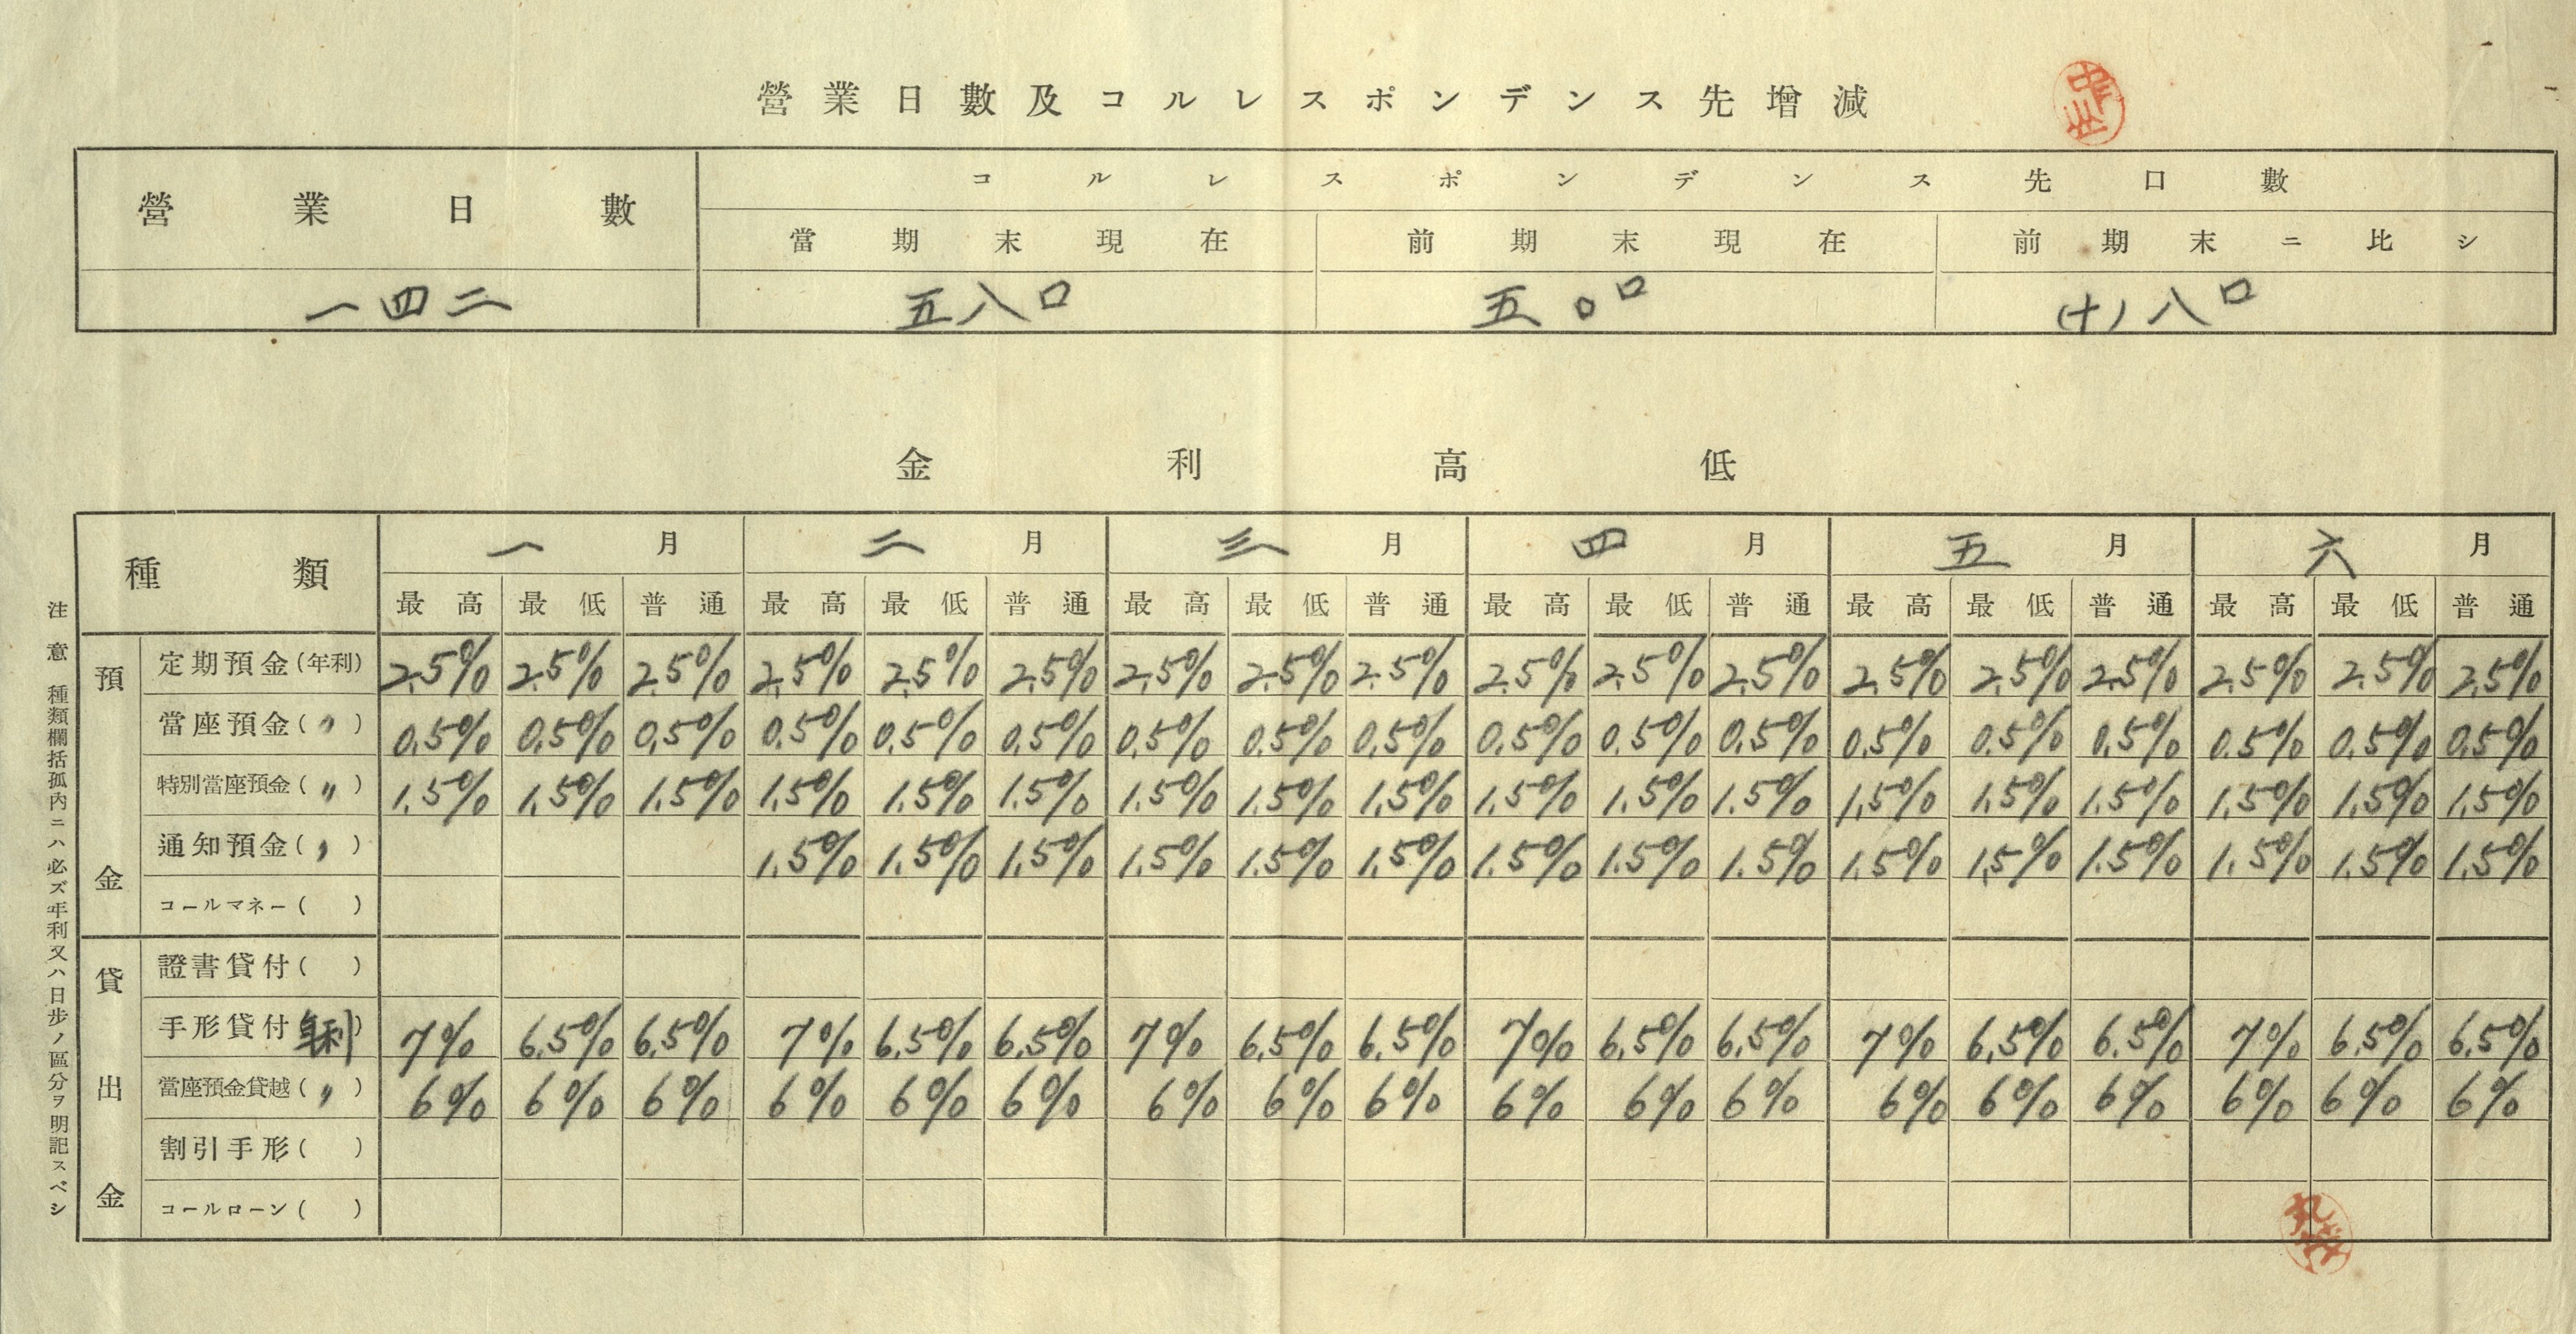 營業日數及コルレスポンデンス先增減
營業日數 コルレスポンデンス先口數
當期末現在 前期末現在 前期末ニ比シ
一四二 五八口 五〇口 (+)八口
金利高低
種類 一月 二月 三月 四月 五月 六月
最高 最低 普通 最高 最低 普通 最高 最低 普通 最高 最低 普通 最高 最低 普通 最高 最低 普通
預金
定期預金(年利) 2.5% 2.5% 2.5% 2.5% 2.5% 2.5% 2.5% 2.5% 2.5% 2.5% 2.5% 2.5% 2.5% 2.5% 2.5% 2.5% 2.5% 2.5%
當座預金(〃) 0.5% 0.5% 0.5% 0.5% 0.5% 0.5% 0.5% 0.5% 0.5% 0.5% 0.5% 0.5% 0.5% 0.5% 0.5% 0.5% 0.5% 0.5%
特別當座預金(〃) 1.5% 1.5% 1.5% 1.5% 1.5% 1.5% 1.5% 1.5% 1.5% 1.5% 1.5% 1.5% 1.5% 1.5% 1.5% 1.5% 1.5% 1.5%
通知預金(〃) 1.5% 1.5% 1.5% 1.5% 1.5% 1.5% 1.5% 1.5% 1.5% 1.5% 1.5% 1.5% 1.5% 1.5% 1.5%
コールマネー( )
貸出金
證書貸付( )
手形貸付(年利) 7% 6.5% 6.5% 7% 6.5% 6.5% 7% 6.5% 6.5% 7% 6.5% 6.5% 7% 6.5% 6.5% 7% 6.5% 6.5%
當座預金貸越(〃) 6% 6% 6% 6% 6% 6% 6% 6% 6% 6% 6% 6% 6% 6% 6% 6% 6% 6%
割引手形( )
コールローン( )
注意 種類欄括孤內ニハ必ズ年利又ハ日步ノ區分ヲ明記スベシ